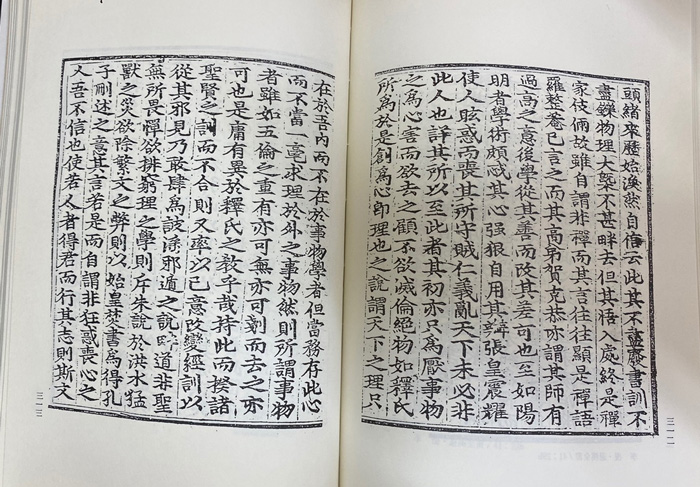 頭緖來歷始渙然自信云此其不盡廢書訓不
盡鑠物理大槩不甚畔去但其悟入處終是禪
家伎倆故雖自謂非禪而其言往往顯是禪語
羅整菴已言之而其高弟賀克恭亦謂其師有
過高之意後學從其善而改其差可也至如陽
明者學術頗忒其心强狠自用其辯張皇震耀
使人眩惑而喪其所守賊仁義亂天下未必非
此人也詳其所以至此者其初亦只爲厭事物
之爲心害而欲去之顧不欲滅倫絶物如釋氏
所爲於是創爲心卽理也之說謂天下之理只
三一二
在於吾內而不在於事物學者但當務存此心
而不當一毫求理於外之事物然則所謂事物
者雖如五倫之重有亦可無亦可剗而去之亦
可也是庸有異於釋氏之敎乎哉持此而揆諸
聖賢之訓而不合則又率以己意改變經訓以
從其邪見乃敢肆爲詖淫邪遁之說畔道非聖
無所畏憚欲排窮理之學則斥朱說於洪水猛
獸之災欲除繁文之弊則以始皇焚書爲得孔
子刪述之意其言若是而自謂非狂惑喪心之
人吾不信也使若人者得君而行其志則斯文
三一三